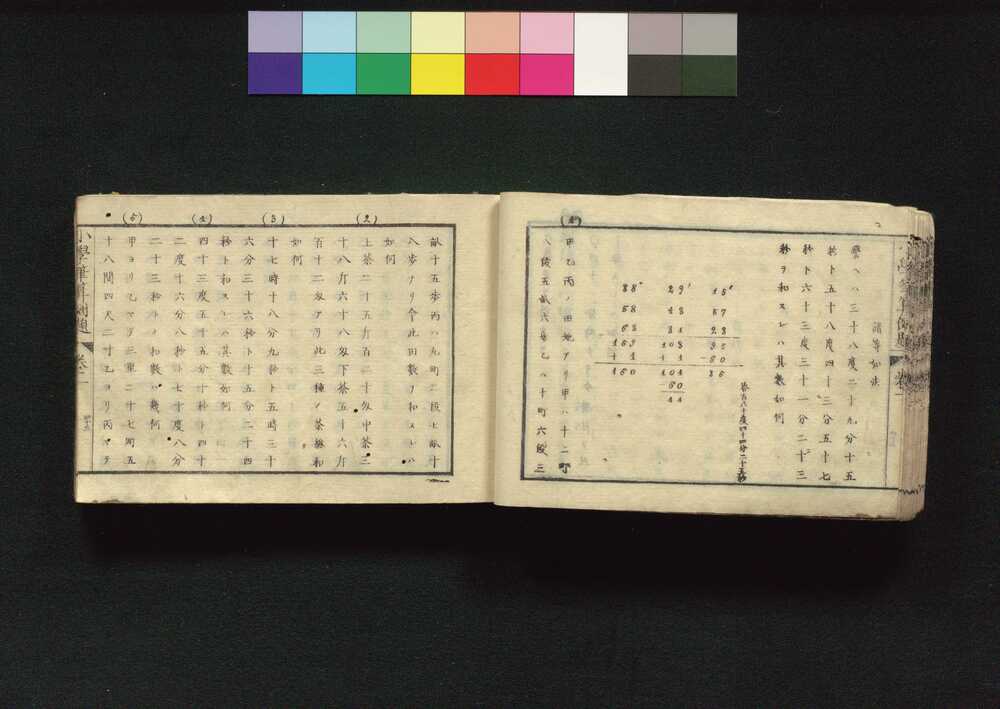 諸等加法
譬ヘハ三十八度二十九分十五
秒ト五十八度四十三分五十七
秒ト六十三度三十一分二十三
秒ヲ和スレハ其數如何
38° 29′ 15″
58 43 57
63 31 23
159 103 95
+1 +1 -60
160 104 35
-60
44
答百六十度四十四分三十五秒
(1) 甲乙丙ノ田地アリ甲ハ十二町
八段五畝六歩乙ハ十町六段三
畝十五歩丙ハ九町二段七畝十
八歩ナリ今此田數ヲ和スレハ
如何
(2) 上茶二十五斤百二十匁中茶三
十八斤六十八匁下茶五十六斤
百十二匁アリ此三種ノ茶總和
如何
(3) 十七時十八分九秒ト五時三十
六分三十六秒ト十五分二十四
秒ト和スレハ其數如何
(4) 四十三度五十五分十秒ト四十
二度十六分八秒ト七十度八分
二十三秒トノ和數ハ幾何
(5) 甲ヨリ乙マデ三里二十七町五
十八間四尺二寸乙ヨリ丙マデ
小學筆算例題